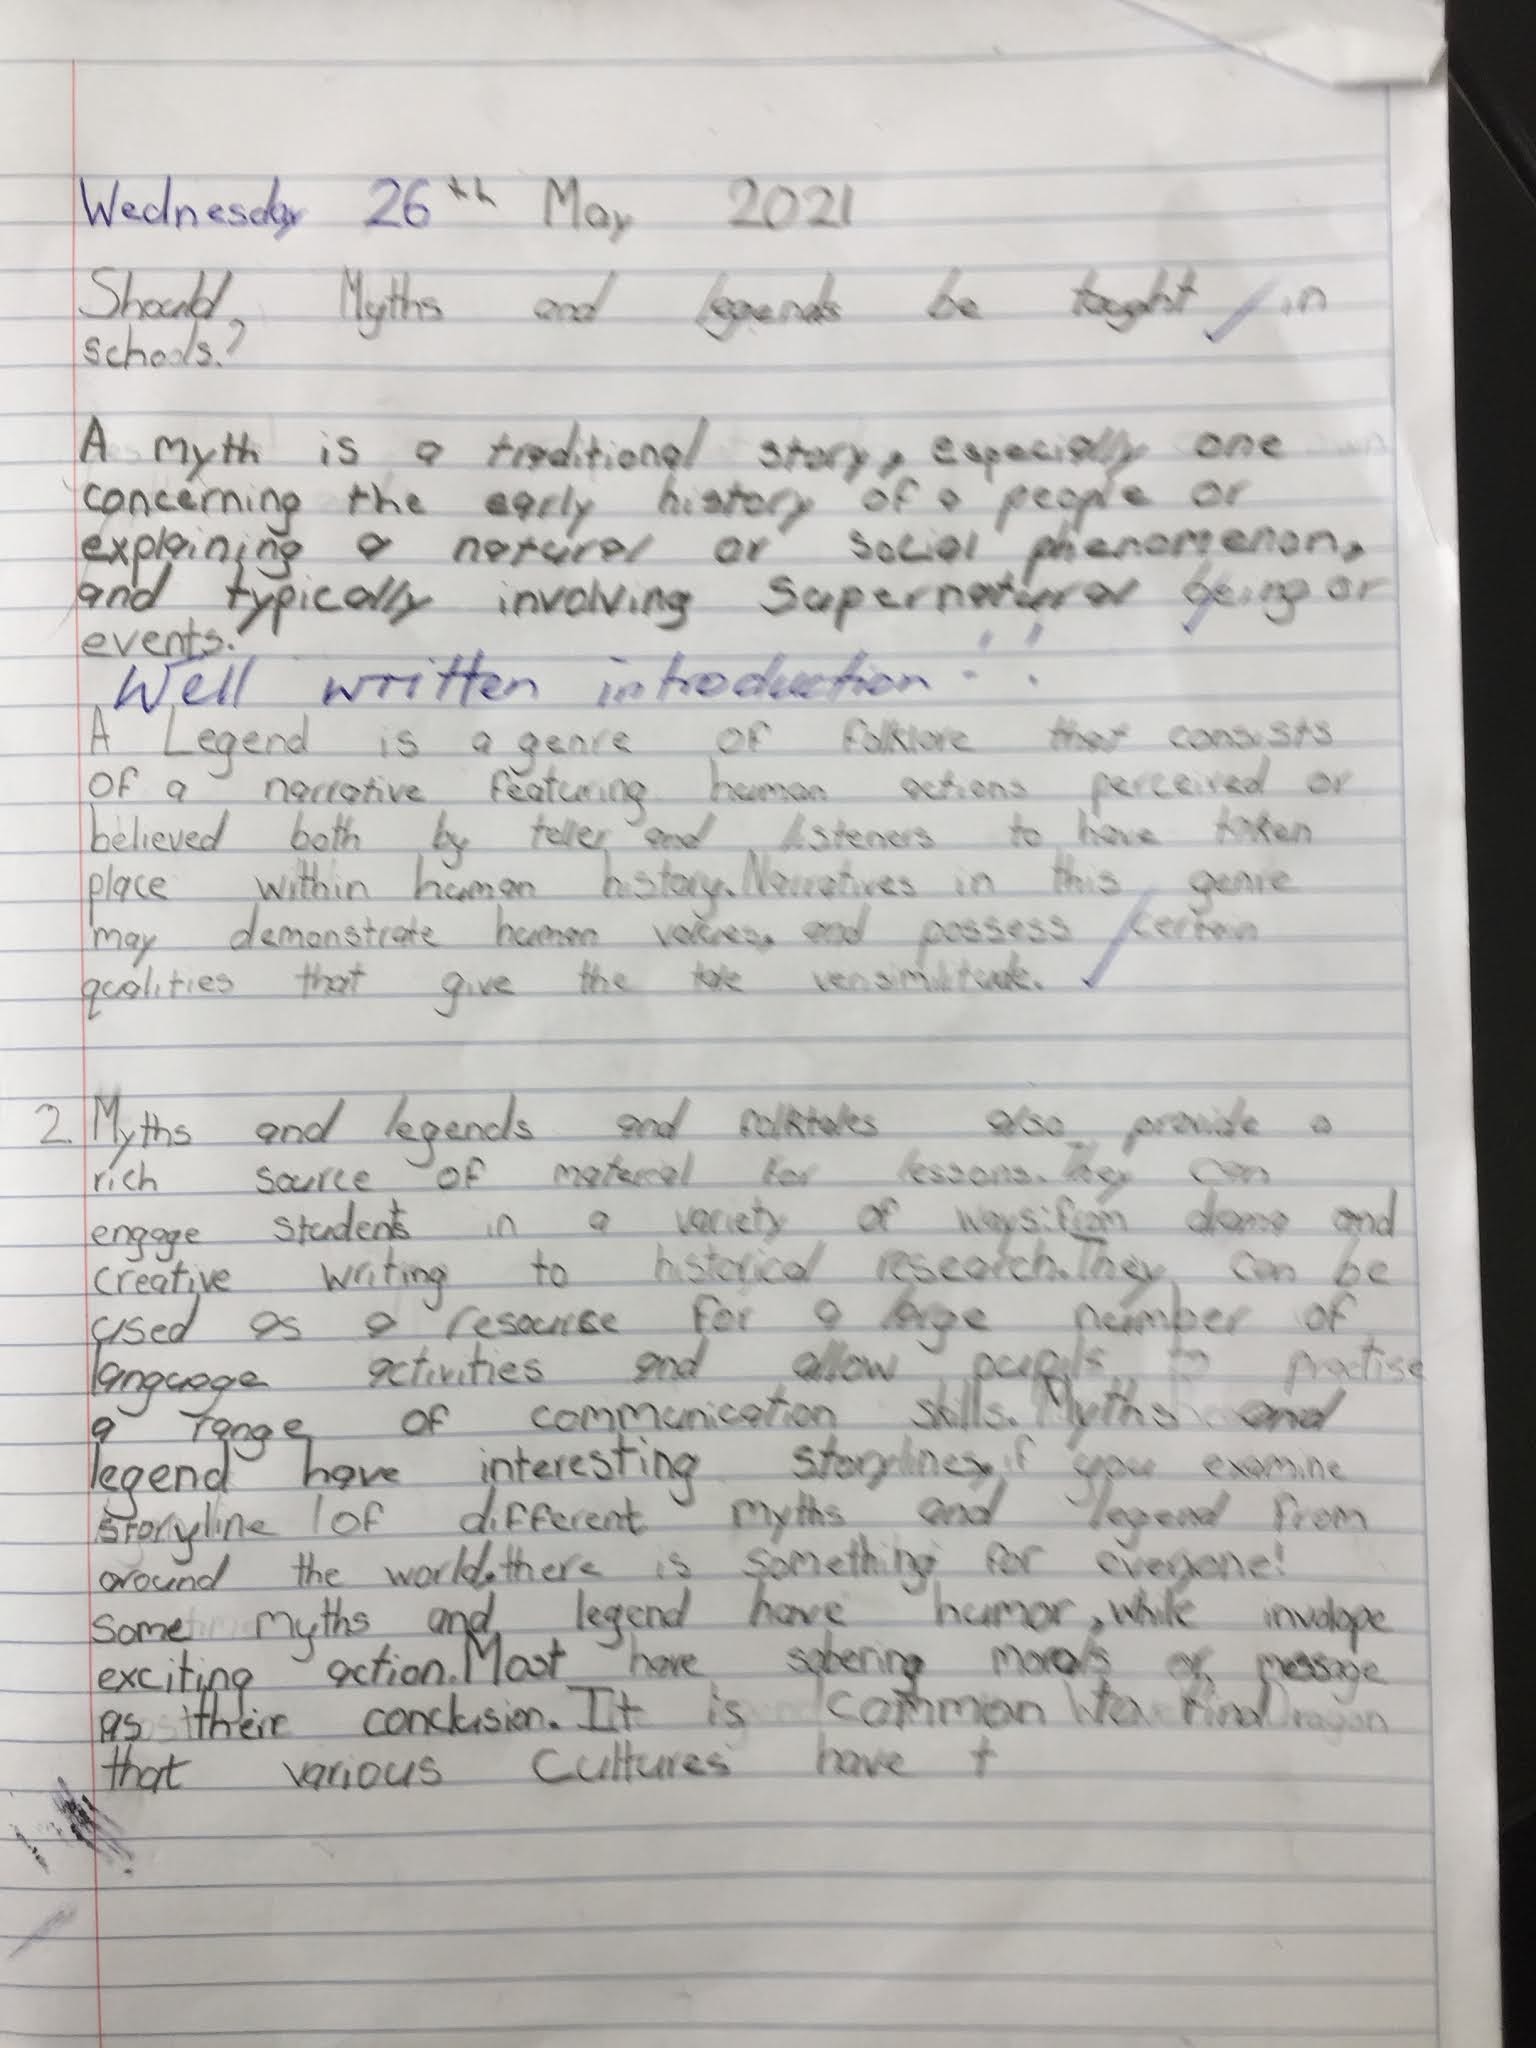 Wednesday 26th May 2021
Should, Myths and legends be tought in
schools.?
A myth is a traditional story, especially one
concerning the early history of a people or
explaining a natural or social phenomenon,
and typically involving Supernatural being or
events.
Well written introduction!!
A Legend is a genre of folklore that consists
of a narrative featuring human actions perceived or
believed both by teller and listeners to have taken
place within human history. Narratives in this genre
may demonstrate human values, and possess certain
qualities that give the tale verisimilitude.
2. Myths and legends and folktales also provide a
rich source of material for lessons. They can
engage students in a variety of ways: from drama and
creative writing to historical research. They can be
used as a resource for a large number of
language activities and allow pupils to practise
a range of communication skills. Myths and
legend have interesting storylines, if you examine
storyline of different myths and legend from
around the world, there is something for everyone!
Some myths and legend have humor, while involope
exciting action. Most have sobering morals or message
as their conclusion. It is common to find
that various Cultures have t